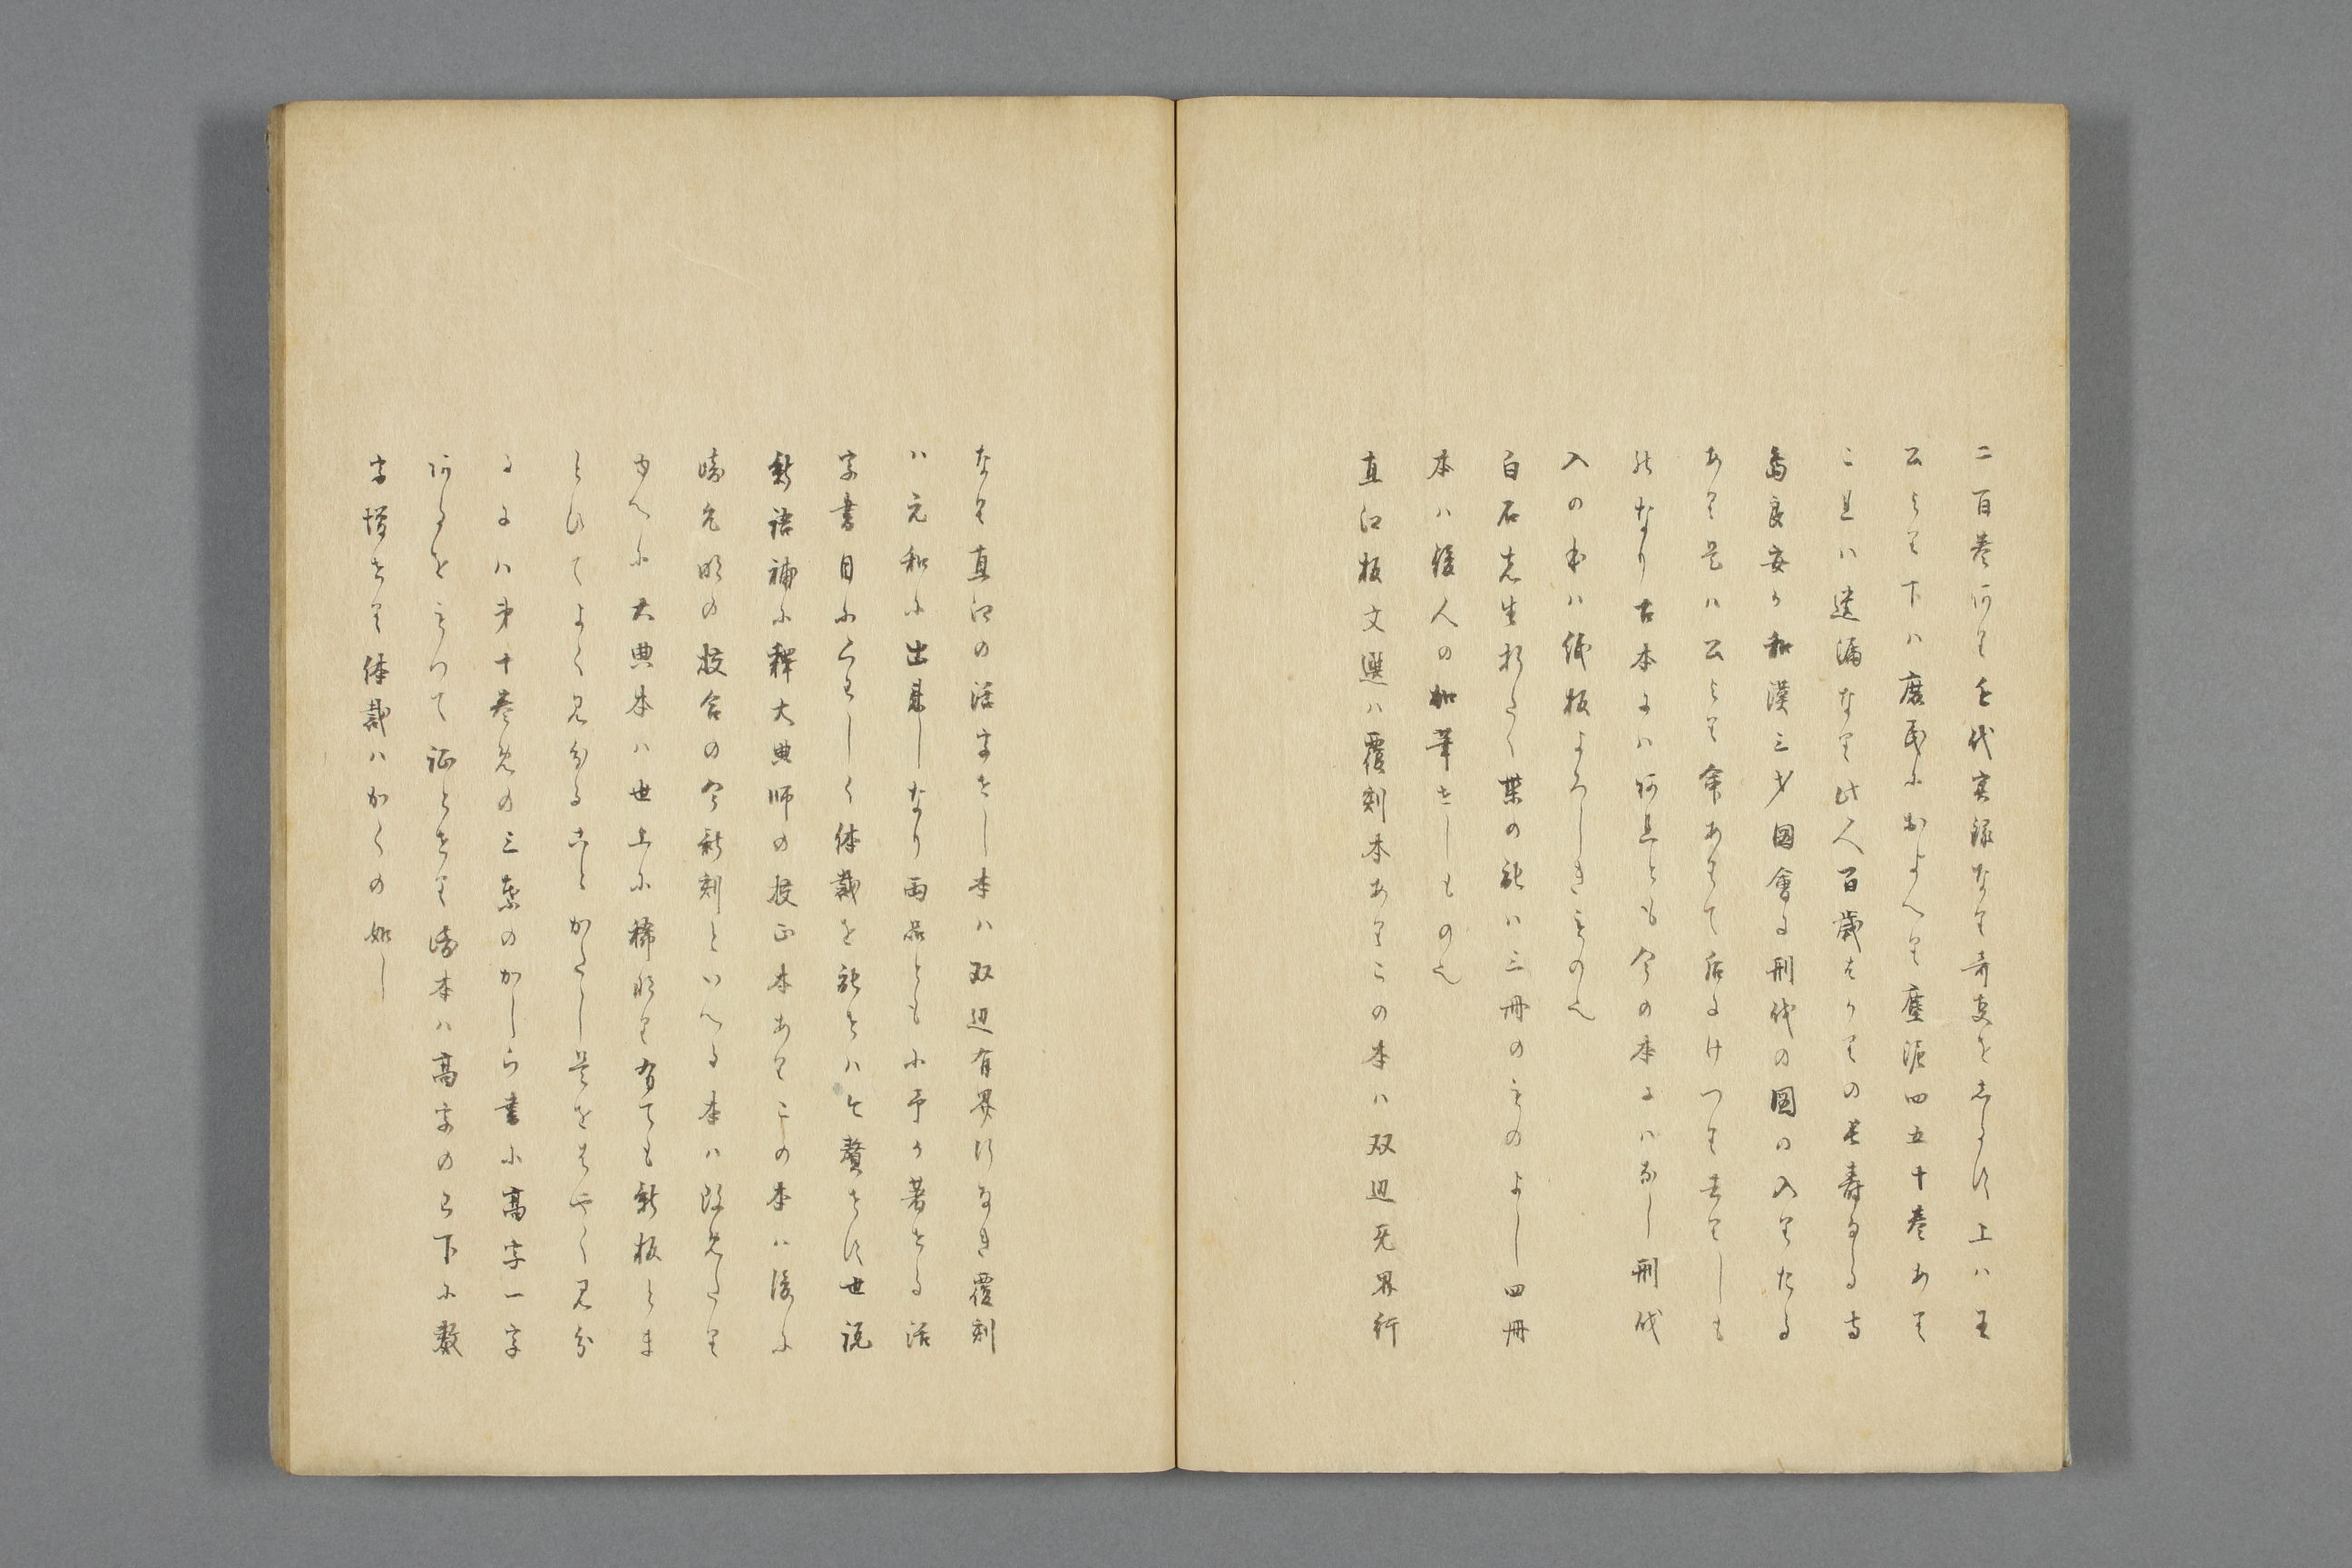 二百巻アリ近代実録なり奇事をしるす上ハ王
公より下ハ庶民におよへり塵泥四五十巻あり
これハ遺漏なり此人百歳はかりの長寿なる寺
島良安か和漢三才図会に刑伐の図の入りたる
あり是ハ公より命ありて后にけつり去りしも
のなり古本にハあれとも今の本にハなし刑伐
入の本ハ紙板よろしきもの也
白石先生折たく柴の記ハ三冊のものよし四冊
本ハ後人の加筆せしもの也
直江板文選ハ覆刻本ありこの本ハ双辺无界行
なり直江の活字せし本ハ双辺有界行なき覆刻
ハ元和に出来しなり両品ともに予か著せる活
字書目にくわしく体裁を記せハ今贅せす世説
新語補に釈大典師の校正本ありこの本ハ後に
崎允明の校合の今新刻といへる本ハ改めたり
ゆへに大典本ハ世上に稀なり有ても新板とま
とひてよく見分ることかたし是をはやく見分
るにハ第十巻めの三葉のかしら書に高字一字
あるをもつて証とせり後本ハ高字の上下に数
字増せり体裁ハかくの如し